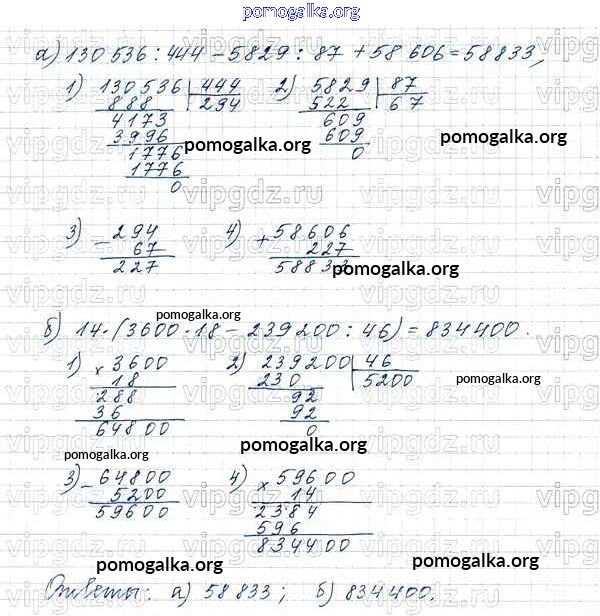 pomogalka.org
а) 130 536 : 444 - 5829 : 87 + 58 606 = 58833,
1) 130536 | 444 2) 5829 | 87
888 294 522 67
4173 609
3996 609
1776 0
1776
0
pomogalka.org pomogalka.org
vipgdz.ru vipgdz.ru
3) - 294 4) + 58606
67 227
227 58833
pomogalka.org
vipgdz.ru vipgdz.ru
pomogalka.org pomogalka.org
б) 14 · (3600 · 18 - 239200 : 46) = 834400.
1) × 3600 2) 239200 | 46
18 230 5200
288 92
36 92
64800 0
pomogalka.org
pomogalka.org
3) - 64800 4) × 59600
5200 14
59600 2384
596
834400
pomogalka.org pomogalka.org
Ответы: а) 58 833; б) 834400.